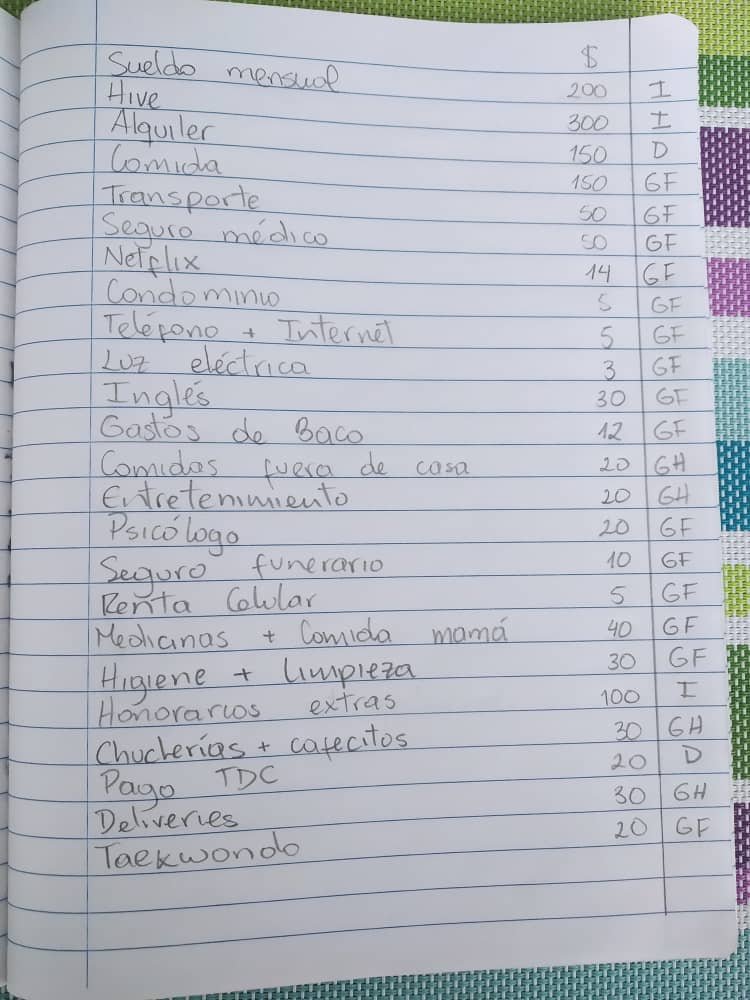 $
Sueldo mensual 200 I
Hive 300 I
Alquiler 150 D
Comida 150 GF
Transporte 50 GF
Seguro médico 50 GF
Netflix 14 GF
Condominio 5 GF
Teléfono + Internet 5 GF
Luz eléctrica 3 GF
Inglés 30 GF
Gastos de Baco 12 GF
Comidas fuera de casa 20 GH
Entretenimiento 20 GH
Psicólogo 20 GF
Seguro funerario 10 GF
Renta Celular 5 GF
Medicinas + Comida mamá 40 GF
Higiene + Limpieza 30 GF
Honorarios extras 100 I
Chucherías + cafecitos 30 GH
Pago TDC 20 D
Deliveries 30 GH
Taekwondo 20 GF